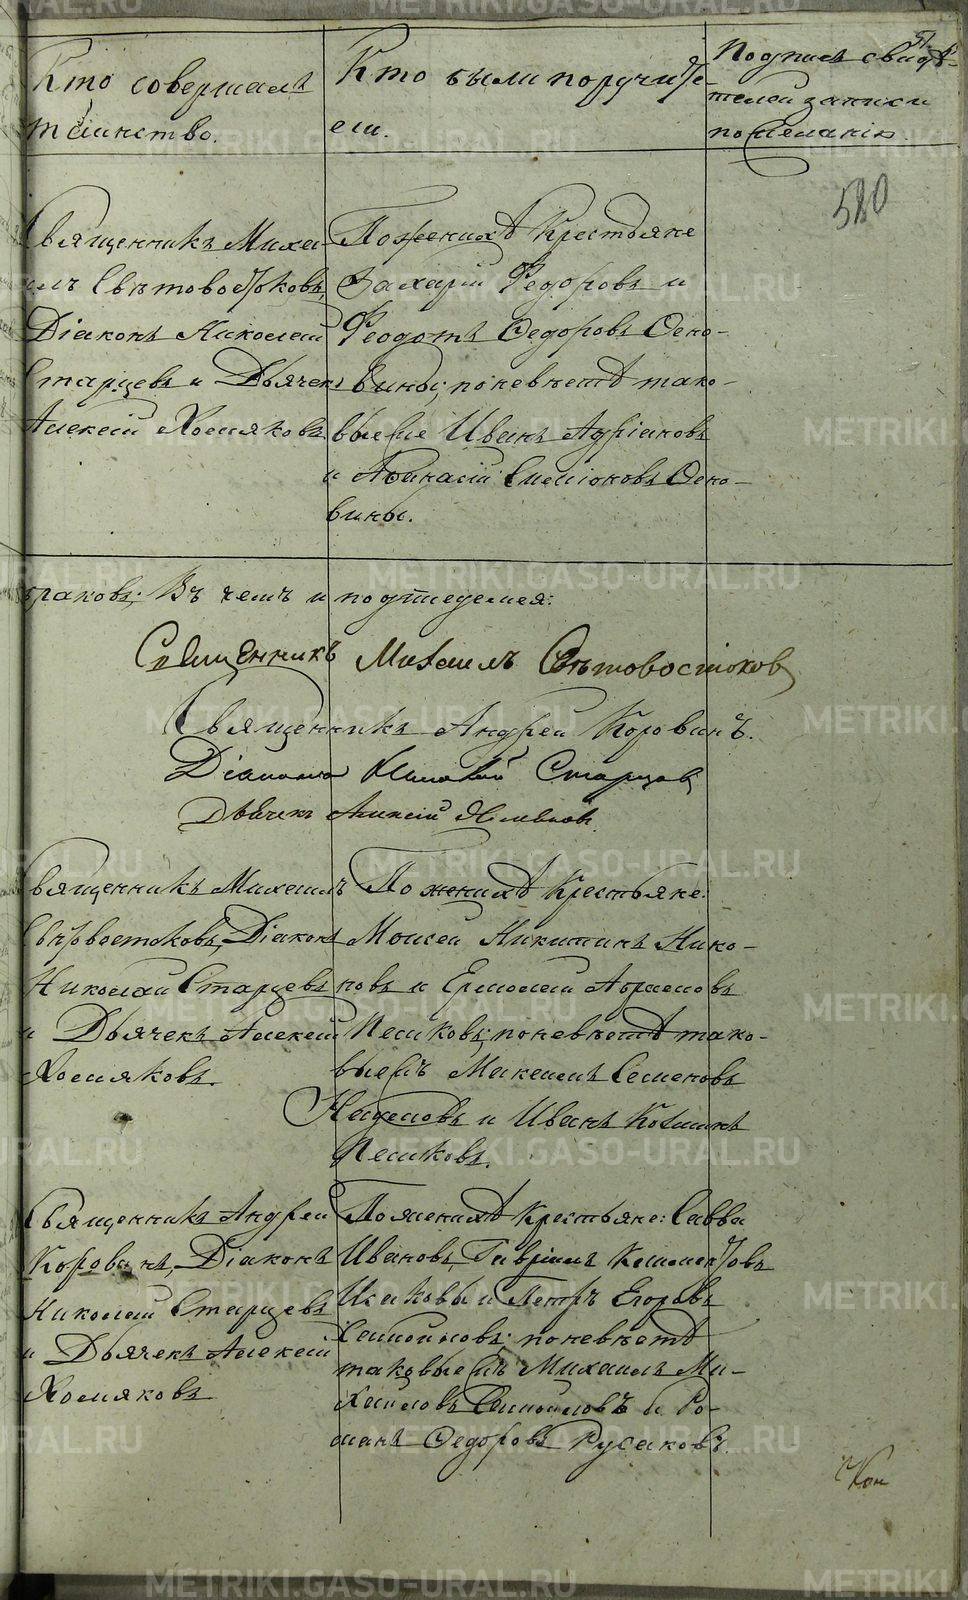 Кто совершалъ
таинство.
Кто были поручите-
ели.
Подпись свидѣ-
телей записи
по желанію.
51.
520
Священникъ Миха-
илъ Свѣтовостоковъ,
Діаконъ Николай
Старцевъ и Дьячекъ
Алексій Хомяковъ
По женихѣ Крестьяне
Захарій Ѳедоровъ и
Ѳеодотъ Ѳедоровъ Осно-
вины; по невѣстѣ тако-
выеже Иванъ Адріановъ
и Аѳанасій Симіоновъ Осно-
вины.
браковъ; Въ чемъ и подписуемся:
Священникъ Михаилъ Свѣтовостоков
Священникъ Андрей Коровинъ.
Діаконъ Николай Старцов
Дьячекъ Алексій Хомяков.
Священникъ Михаилъ
Свѣтовостоковъ, Діаконъ
Николай Старцевъ
и Дьячекъ Алексій
Хомяковъ.
По женихѣ Крестьяне:
Моисей Никитинъ Нико-
новъ и Ермолай Абрамовъ
Песиковъ; по невѣстѣ тако-
выежъ Михаилъ Семеновъ
и Иванъ Козминъ
Песиковъ.
Священникъ Андрей
Коровинъ, Діаконъ
Николай Старцевъ
и Дьячекъ Алексій
Хомяковъ
По женихѣ Крестьяне: Савва
Ивановъ, Гавріилъ
Исаковы и Петръ Егоровъ
Самойловъ; по невѣстѣ
таковыежъ Михаилъ Ми-
хайловъ Самойловъ и Ро-
манъ Ѳедоровъ Русаковъ.
METRIKI.GASO-URAL.RU